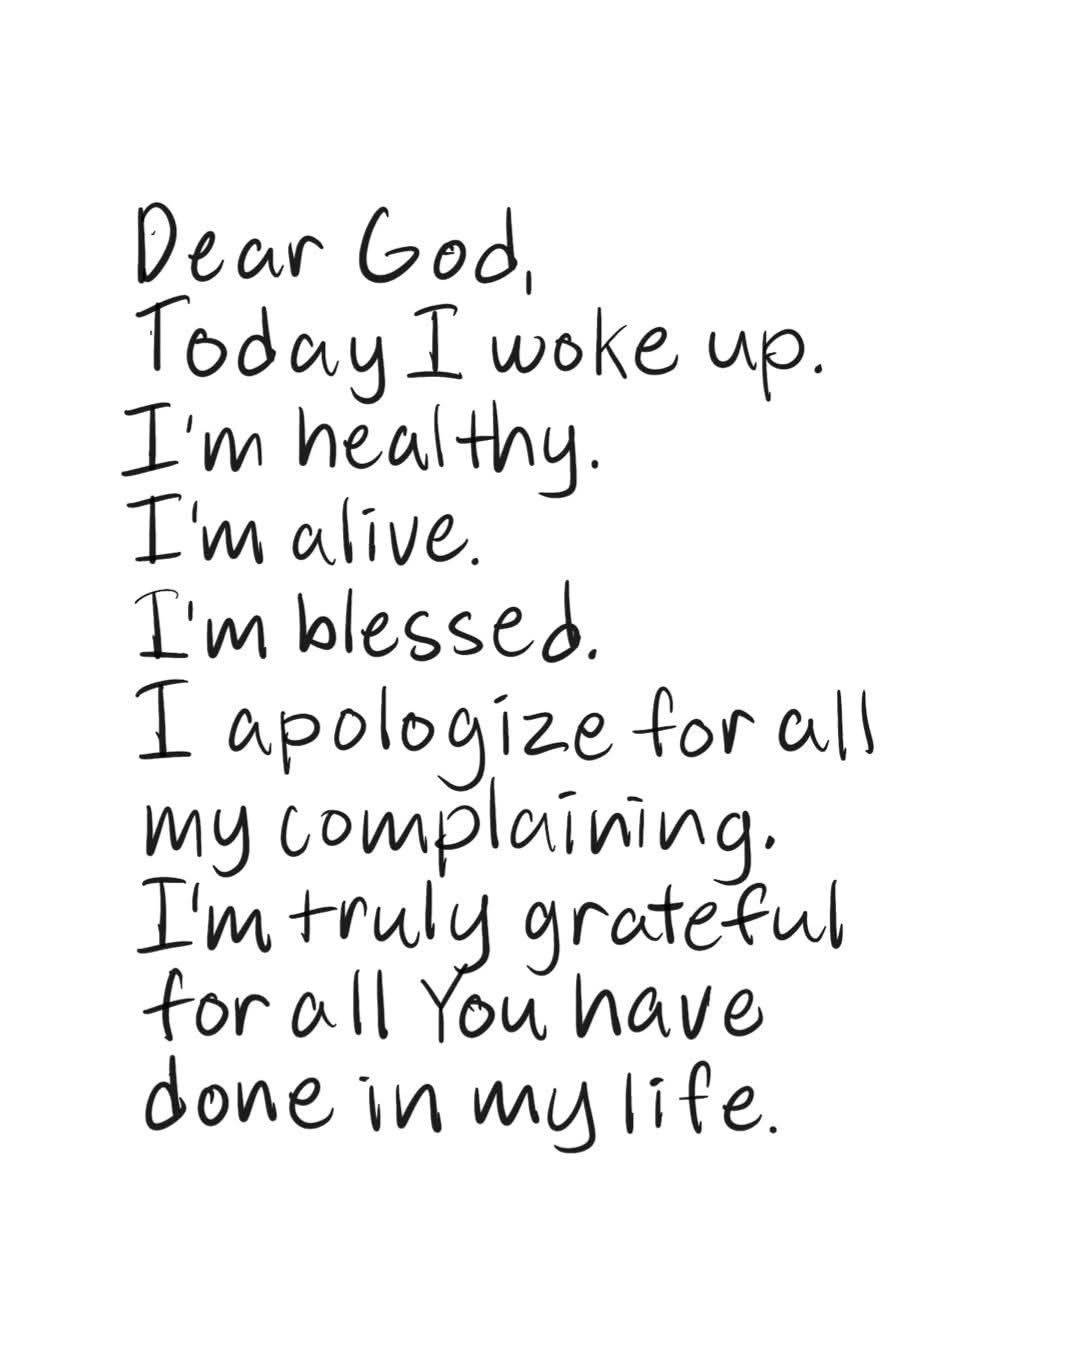 Dear God,
Today I woke up.
I'm healthy.
I'm alive.
I'm blessed.
I apologize for all
my complaining.
I'm truly grateful
for all You have
done in my life.